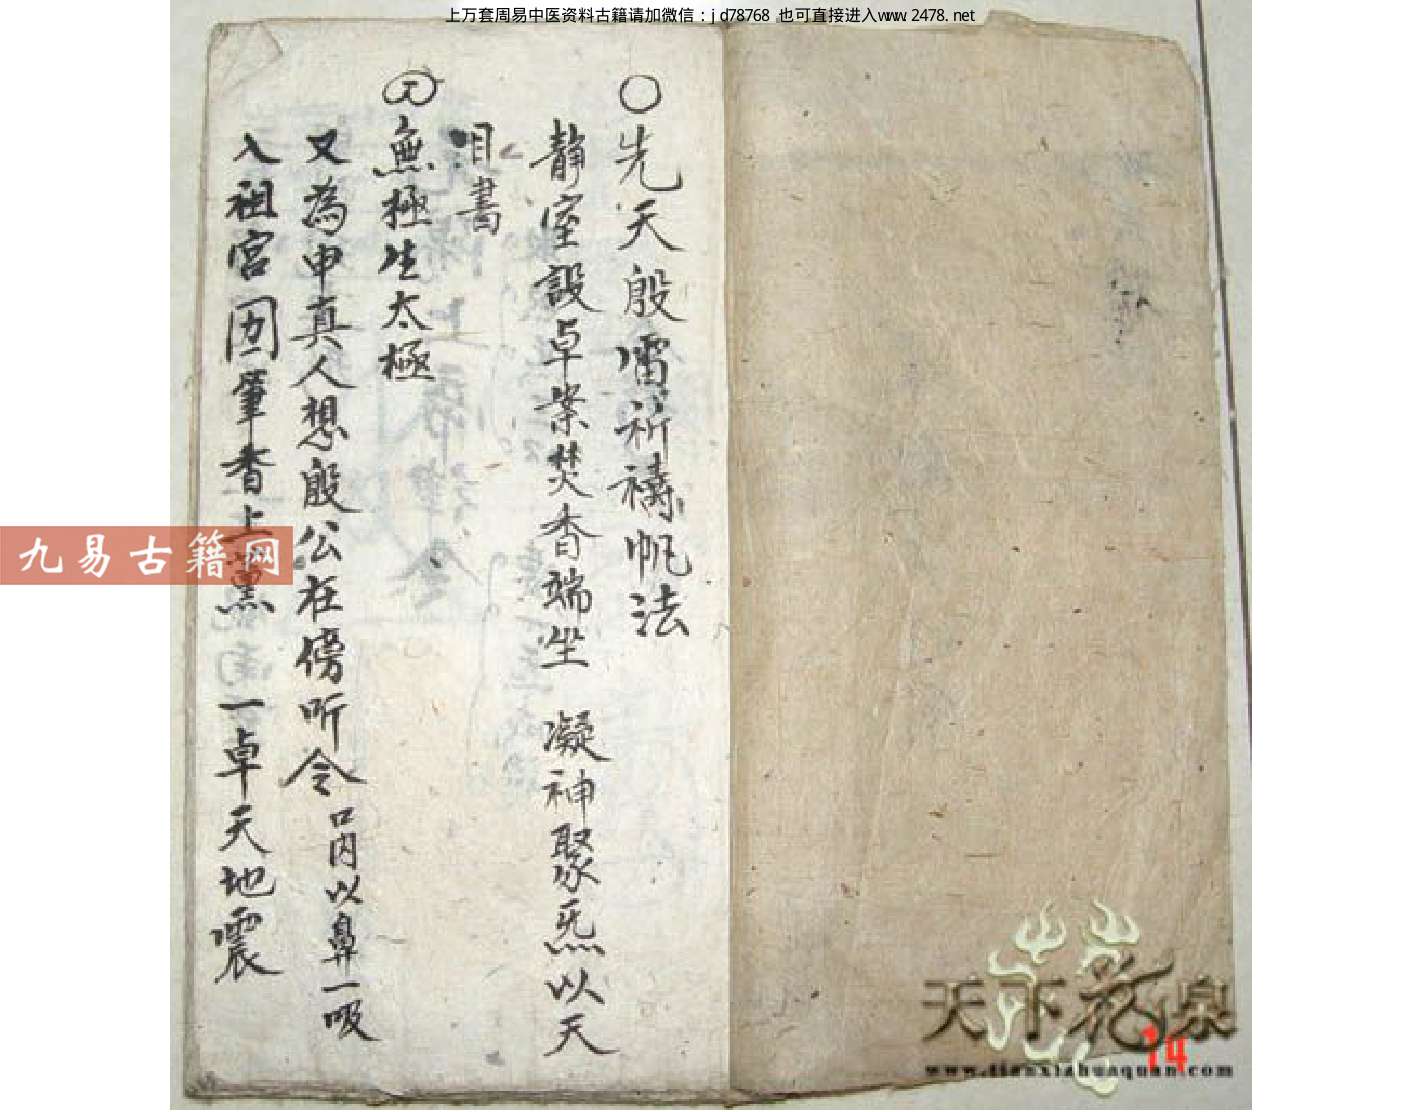 上万套周易中医资料古籍请加微信：jd78768 也可直接进入www.2478.net
○先天殷雷祈禱帆法
靜室設卓業焚香端坐 凝神聚炁以天
目書
無極生太極
又為申真人想殷公在傍听令口內以鼻一吸
入祖宮 筆香上薰 一卓天地震
九易古籍网
天下花泉
14
www.tianxiahuaquan.com